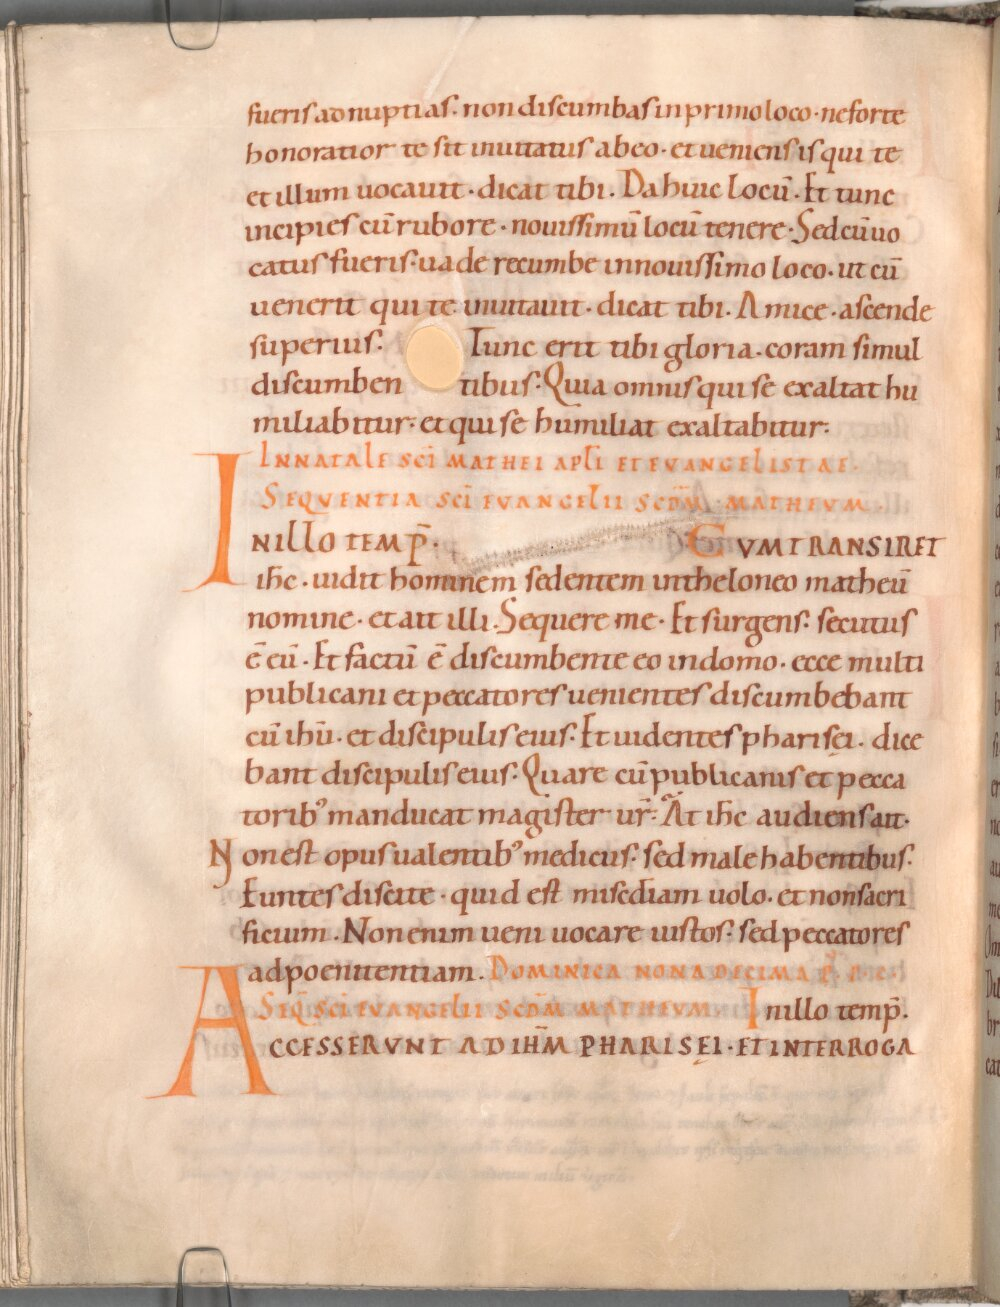 fueris ad nuptias· non discumbas in primo loco· ne forte
honoratior te sit inuitatus ab eo· et ueniens is qui te
et illum uocauit· dicat tibi. Da huic locū· Et tunc
incipies cū rubore· nouissimū locū tenere· Sed cū uo
catus fueris· uade recumbe in nouissimo loco· ut cū
uenerit qui te inuitauit· dicat tibi. Amice· ascende
superius· Tunc erit tibi gloria· coram simul
discumben tibus· Quia omnis qui se exaltat hu
miliabitur· et qui se humiliat exaltabitur·
IN NATALE SCĪ MATHEI APLĪ ET EVANGELISTAE·
SEQVENTIA SCĪ EVANGELII SCDM̄· MATHEVM·
IN ILLO TEMP̄· CVM TRANSIRET
ih̄c· uidit hominem sedentem in theloneo matheū
nomine· et ait illi. Sequere me· Et surgens· secutus
ē eū· Et factū ē discumbente eo in domo· ecce multi
publicani et peccatores uenientes discumbebant
cū ihū· et discipulis eius· Et uidentes pharisęi· dice
bant discipulis eius· Quare cū publicanis et pecca
toribꝰ manducat magister ur̄· At ih̄c audiens ait·
Non est opus ualentibꝰ medicus· sed male habentibus·
Euntes discite· quid est misediam uolo· et non sacri
ficium· Non enim ueni uocare iustos· sed peccatores
ad poenitentiam. DOMINICA NONA DECIMA P̄· P̄· E·
SEQ̄ SCĪ EVANGELII SCDM̄ MATHEVM· In illo temp̄.
ACCESSERVNT AD IHM̄ PHARISĘI· ET INTERROGA